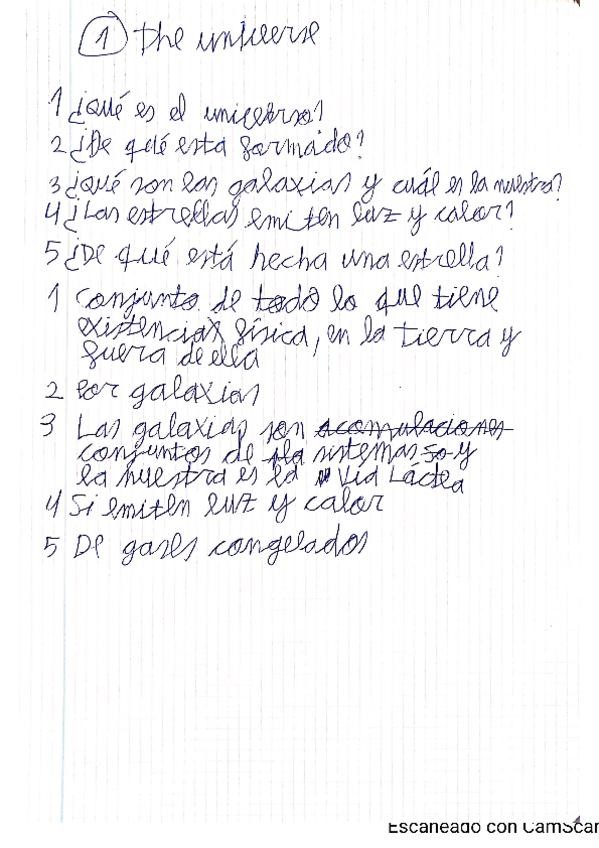 1 The universe
1 ¿Qué es el universo?
2 ¿De qué está formado?
3 ¿Qué son las galaxias y cuál es la nuestra?
4 ¿Las estrellas emiten luz y calor?
5 ¿De qué está hecha una estrella?
1 Conjunto de todo lo que tiene
existencia física, en la tierra y
fuera de ella
2 Por galaxias
3 Las galaxias son acomulaciones
conjuntos de sistemas so y
la nuestra es la Vía Láctea
4 Si emiten luz y calor
5 De gases congelados
Escaneado con CamScan